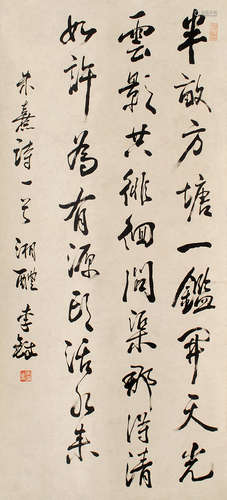 半畝方塘一鑑開天光
雲影共徘徊問渠那得清
如許為有源頭活水來
朱熹詩一首 湘醴 李鐸